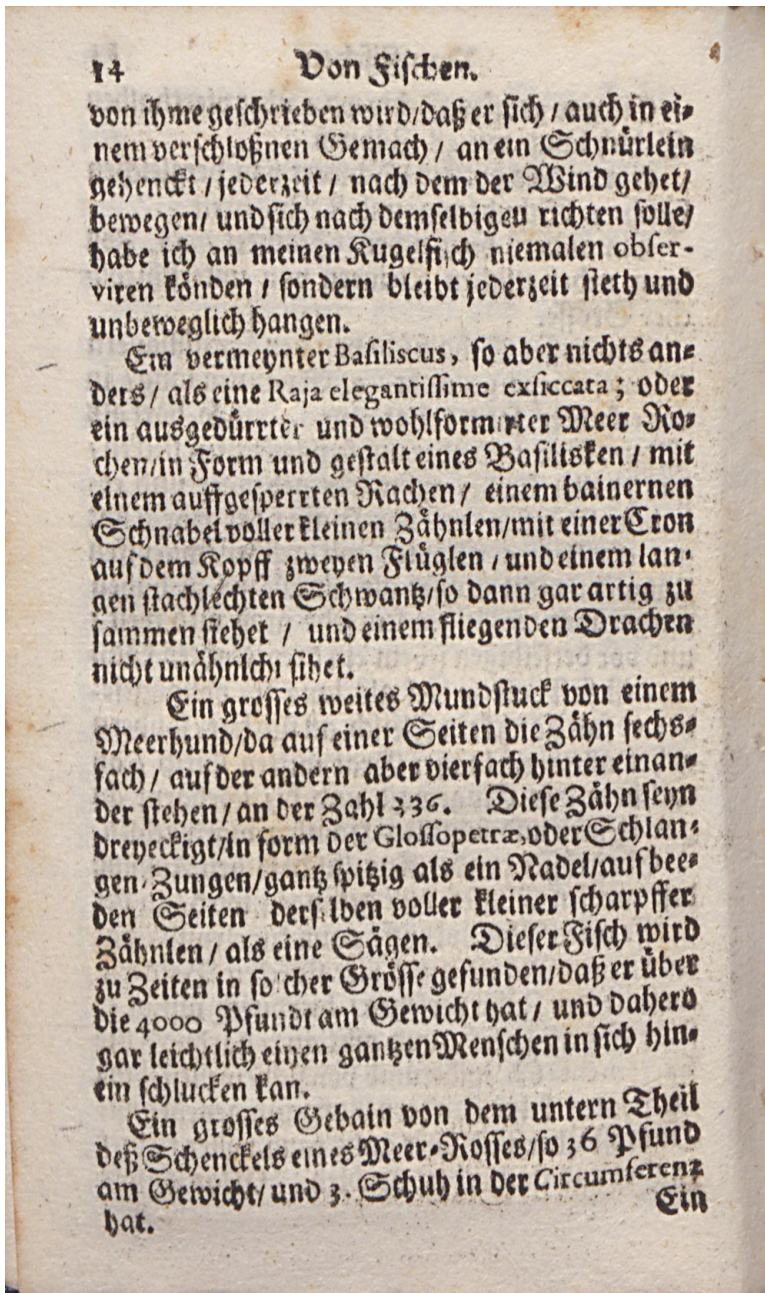 14 Von Fischen.
von ihme geschrieben wird/daß er sich / auch in ei-
nem verschloßnen Gemach / an ein Schnürlein
gehenckt / jederzeit / nach dem der Wind gehet/
bewegen/ und sich nach demselbigen richten solle/
habe ich an meinen Kugelfisch niemalen obser-
viren könden / sondern bleibt jederzeit steth und
unbeweglich hangen.
Ein vermeynter Basiliscus, so aber nichts an-
ders / als eine Raja elegantissime exsiccata; oder
ein ausgedürrter und wohlformirter Meer Ro-
chen/in Form und gestalt eines Basilisken / mit
einem auffgesperrten Rachen / einem bainernen
Schnabel voller kleinen Zähnlen/mit einer Cron
auf dem Kopff zweyen Flüglen / und einem lan-
gen stachlechten Schwantz/so dann gar artig zu
sammen stehet / und einem fliegenden Drachen
nicht unähnlich sihet.
Ein grosses weites Mundstuck von einem
Meerhund/da auf einer Seiten die Zähn sechs-
fach / auf der andern aber vierfach hinter einan-
der stehen / an der Zahl 236. Diese Zähn seyn
dreyeckigt/in form der Glossopetræ, oder Schlan-
gen-Zungen/gantz spitzig als ein Nadel/auf bee-
den Seiten derselben voller kleiner scharpffer
Zähnlen / als eine Sägen. Dieser Fisch wird
zu Zeiten in solcher Grösse gefunden/daß er über
die 4000 Pfundt am Gewicht hat / und dahero
gar leichtlich einen gantzen Menschen in sich hin-
ein schlucken kan.
Ein grosses Gebain von dem untern Theil
deß Schenckels eines Meer-Rosses/so 36 Pfund
am Gewicht/ und 3. Schuh in der Circumferenz
hat.
Ein